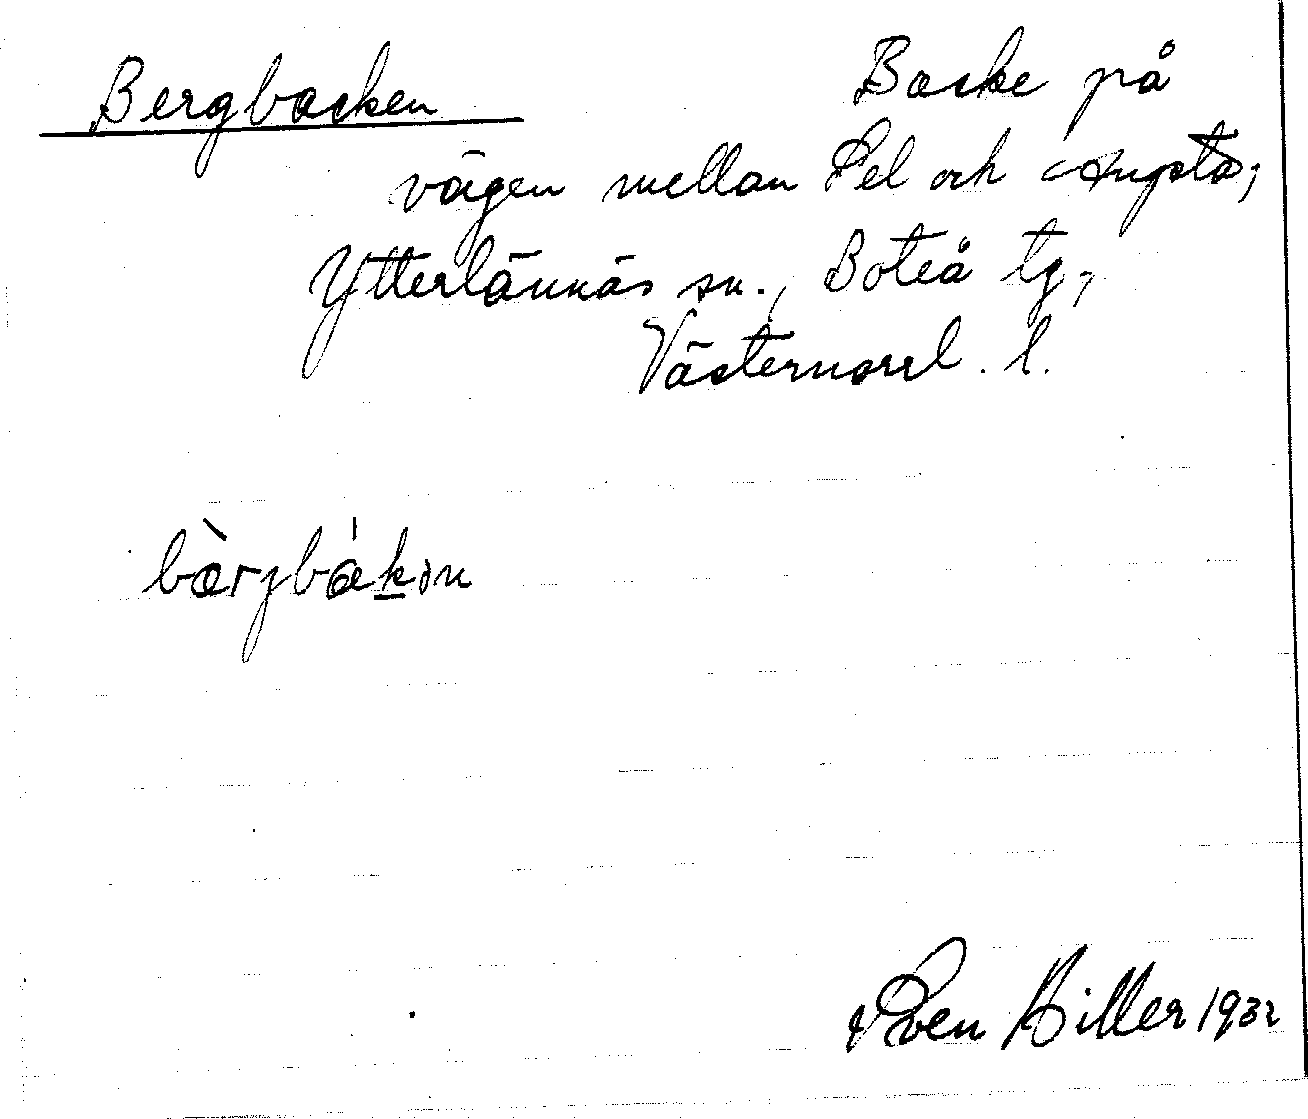 Bergbacken Backe på
vägen mellan Pel och Angsta,
Ytterlännäs sn., Boteå tg,
Västernorrl. l.
bàrjbákən
Sven Hiller 1932